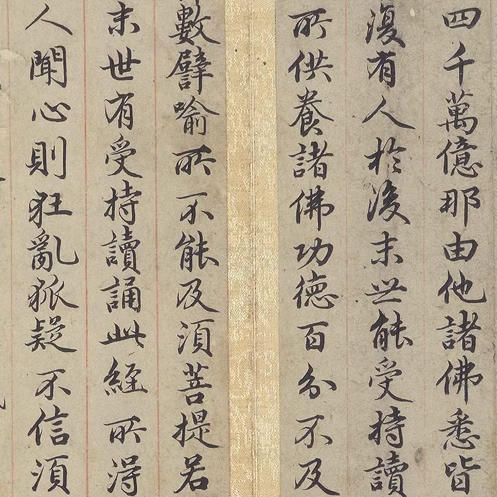 四千萬億那由他諸佛悉皆
復有人於後末世能受持讀
所供養諸佛功德百分不及
數譬喻所不能及須菩提若
末世有受持讀誦此經所得
人聞心則狂亂狐疑不信須